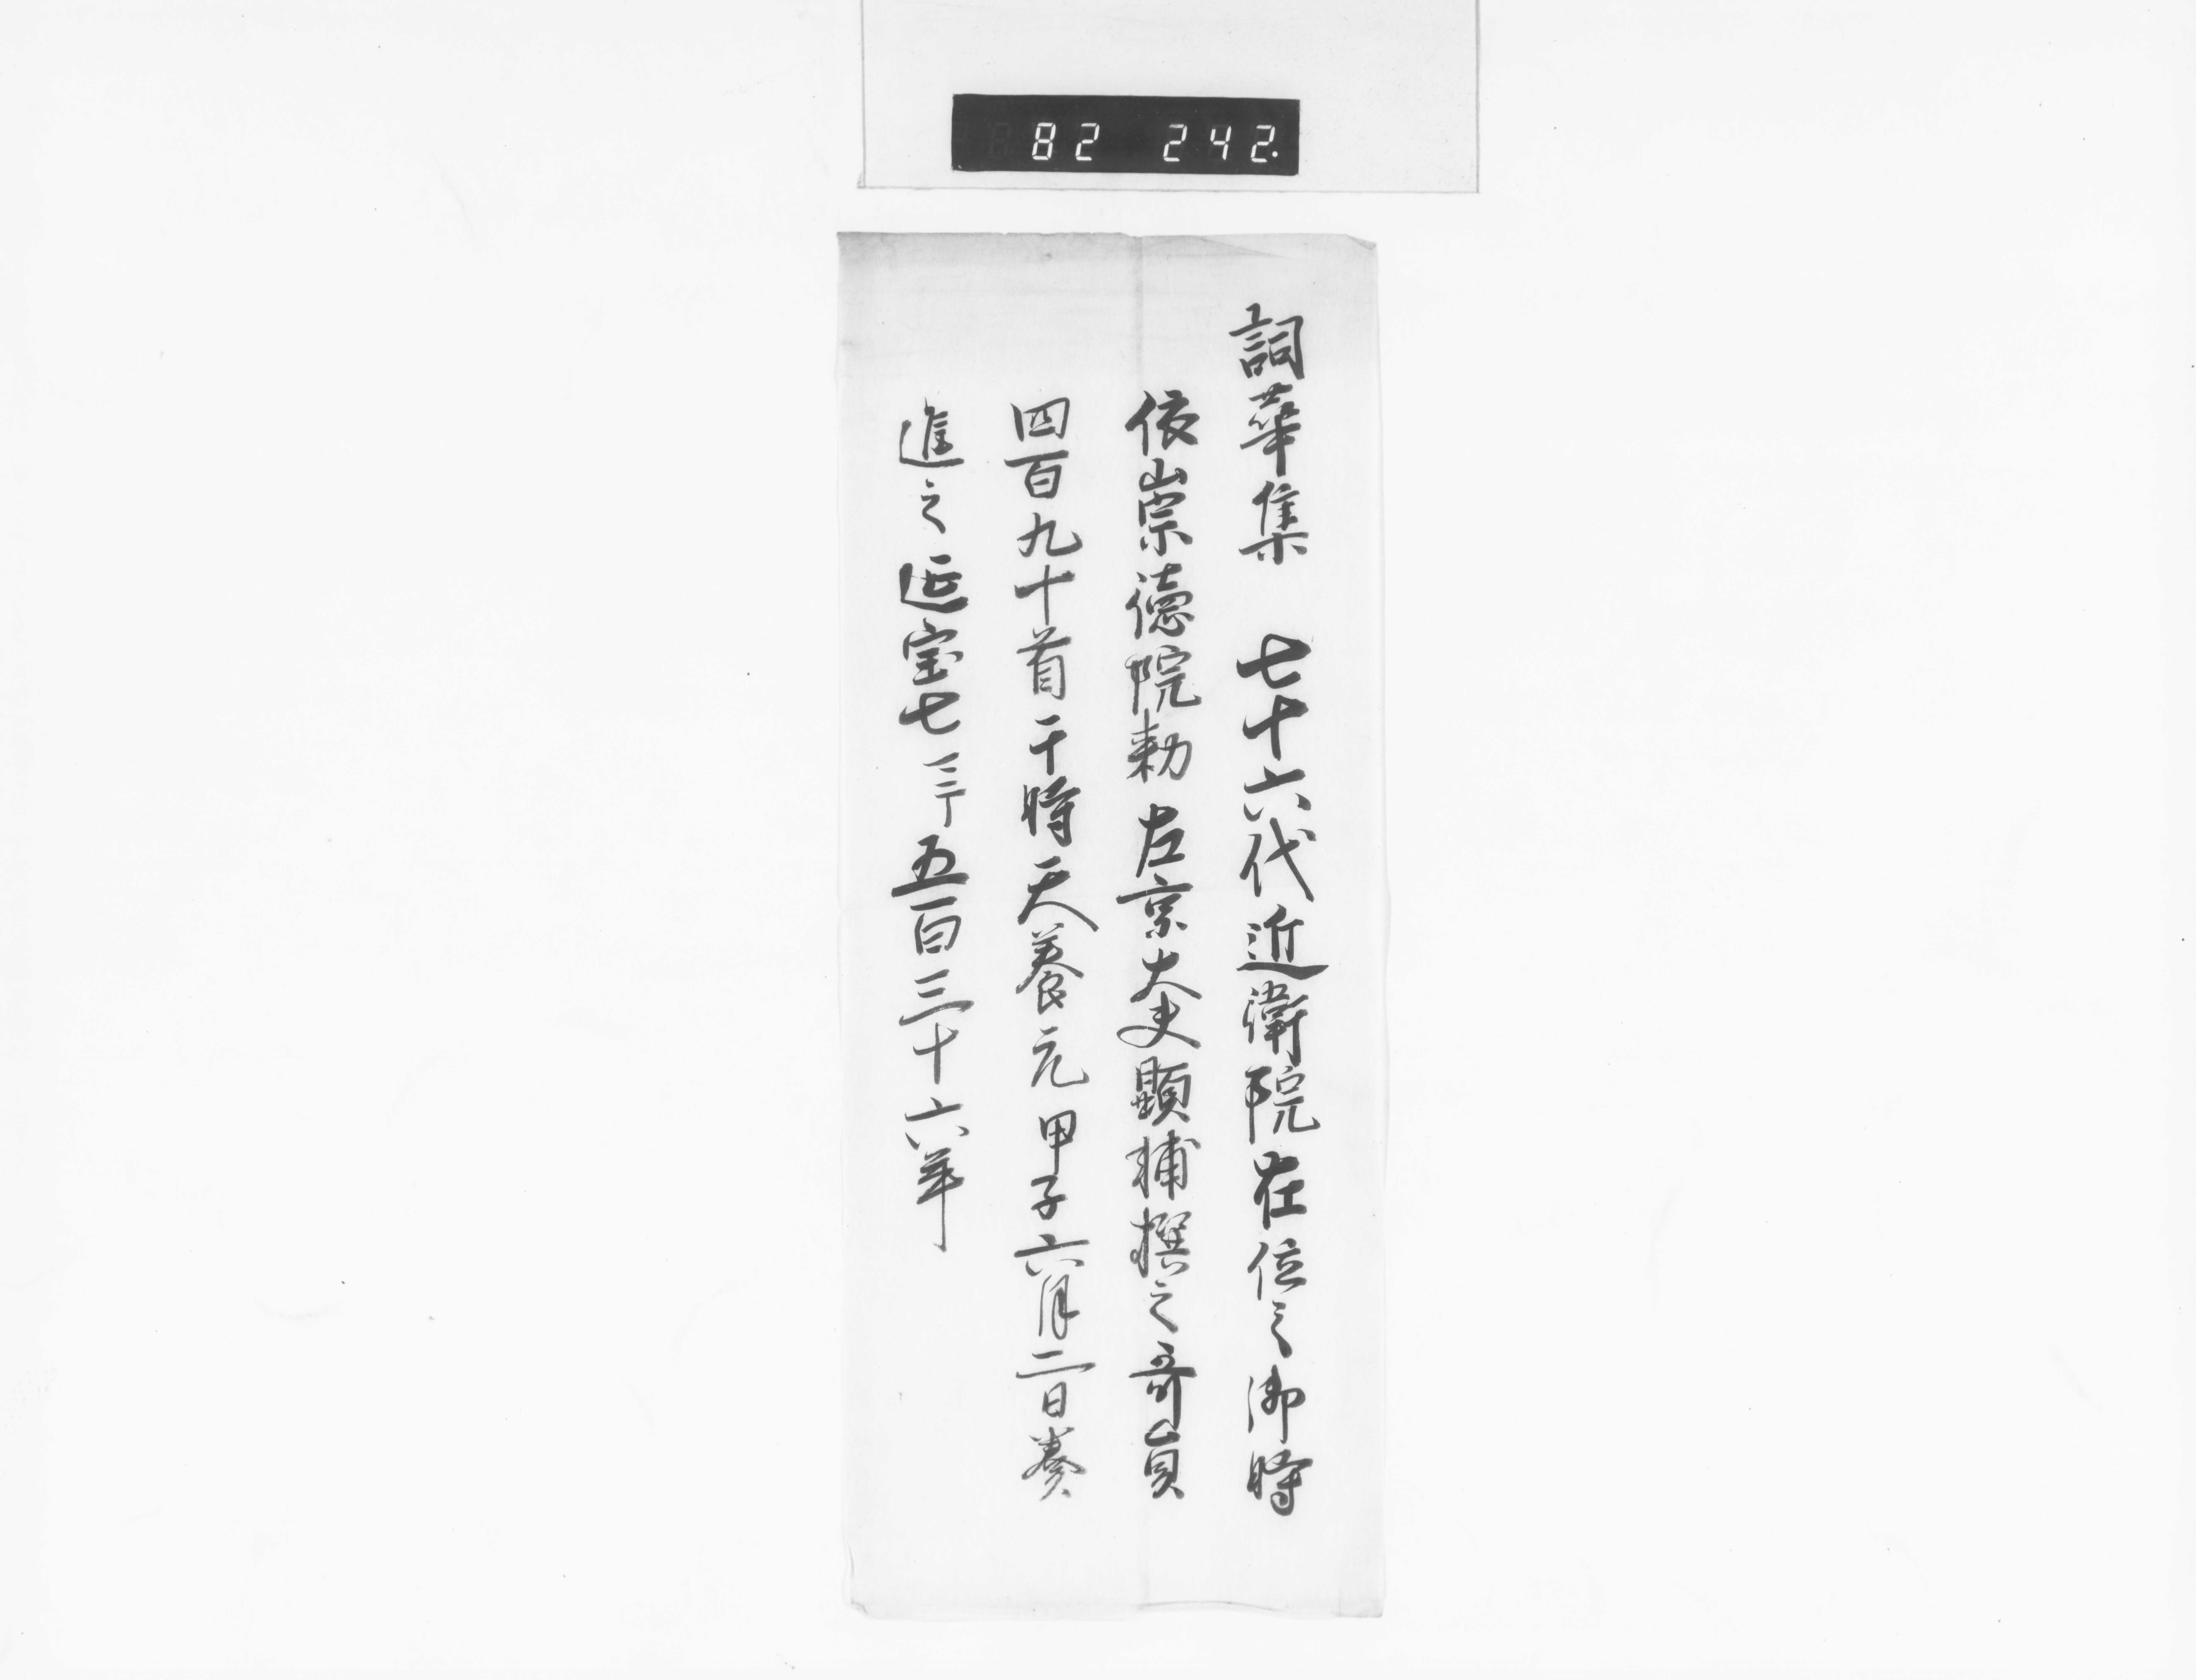 82 242.
詞華集 七十六代近衛院在位之御時
依崇德院勅左京大夫顕輔撰之哥員
四百九十首于時天養元甲子六月二日奏
進之延宝七五百三十六年